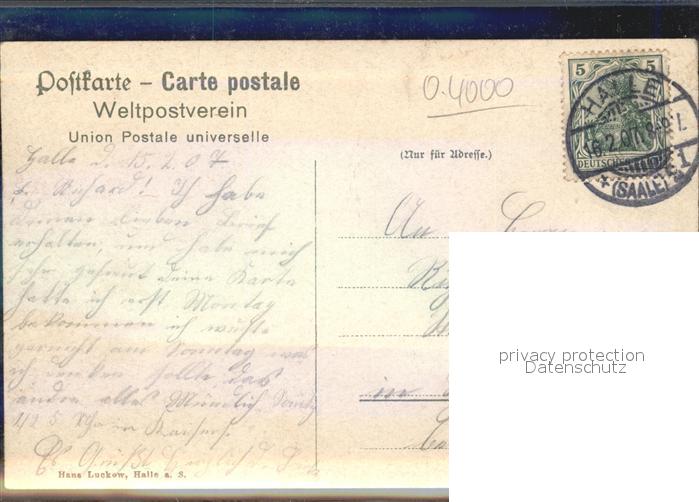 Postkarte – Carte postale
Weltpostverein
Union Postale universelle
0.4000
5 5
HALLE
16.2.07.8-9V.
DEUTSCHES
*(SAALE)*1
(Nur für Adresse.)
Halle d. 15.2.07
L. Richard! Ich habe
deinen lieben Brief
erhalten, und habe mich
sehr gefreut deine Karte
hatte ich erst Montag
bekommen ich wußte
garnicht am Sonntag was
ich denken sollte, das
andre alles Mündlich
1/2 5 Uhr
Es Grüßt
An Herrn
in
privacy protection
Datenschutz
Hans Luckow, Halle a. S.